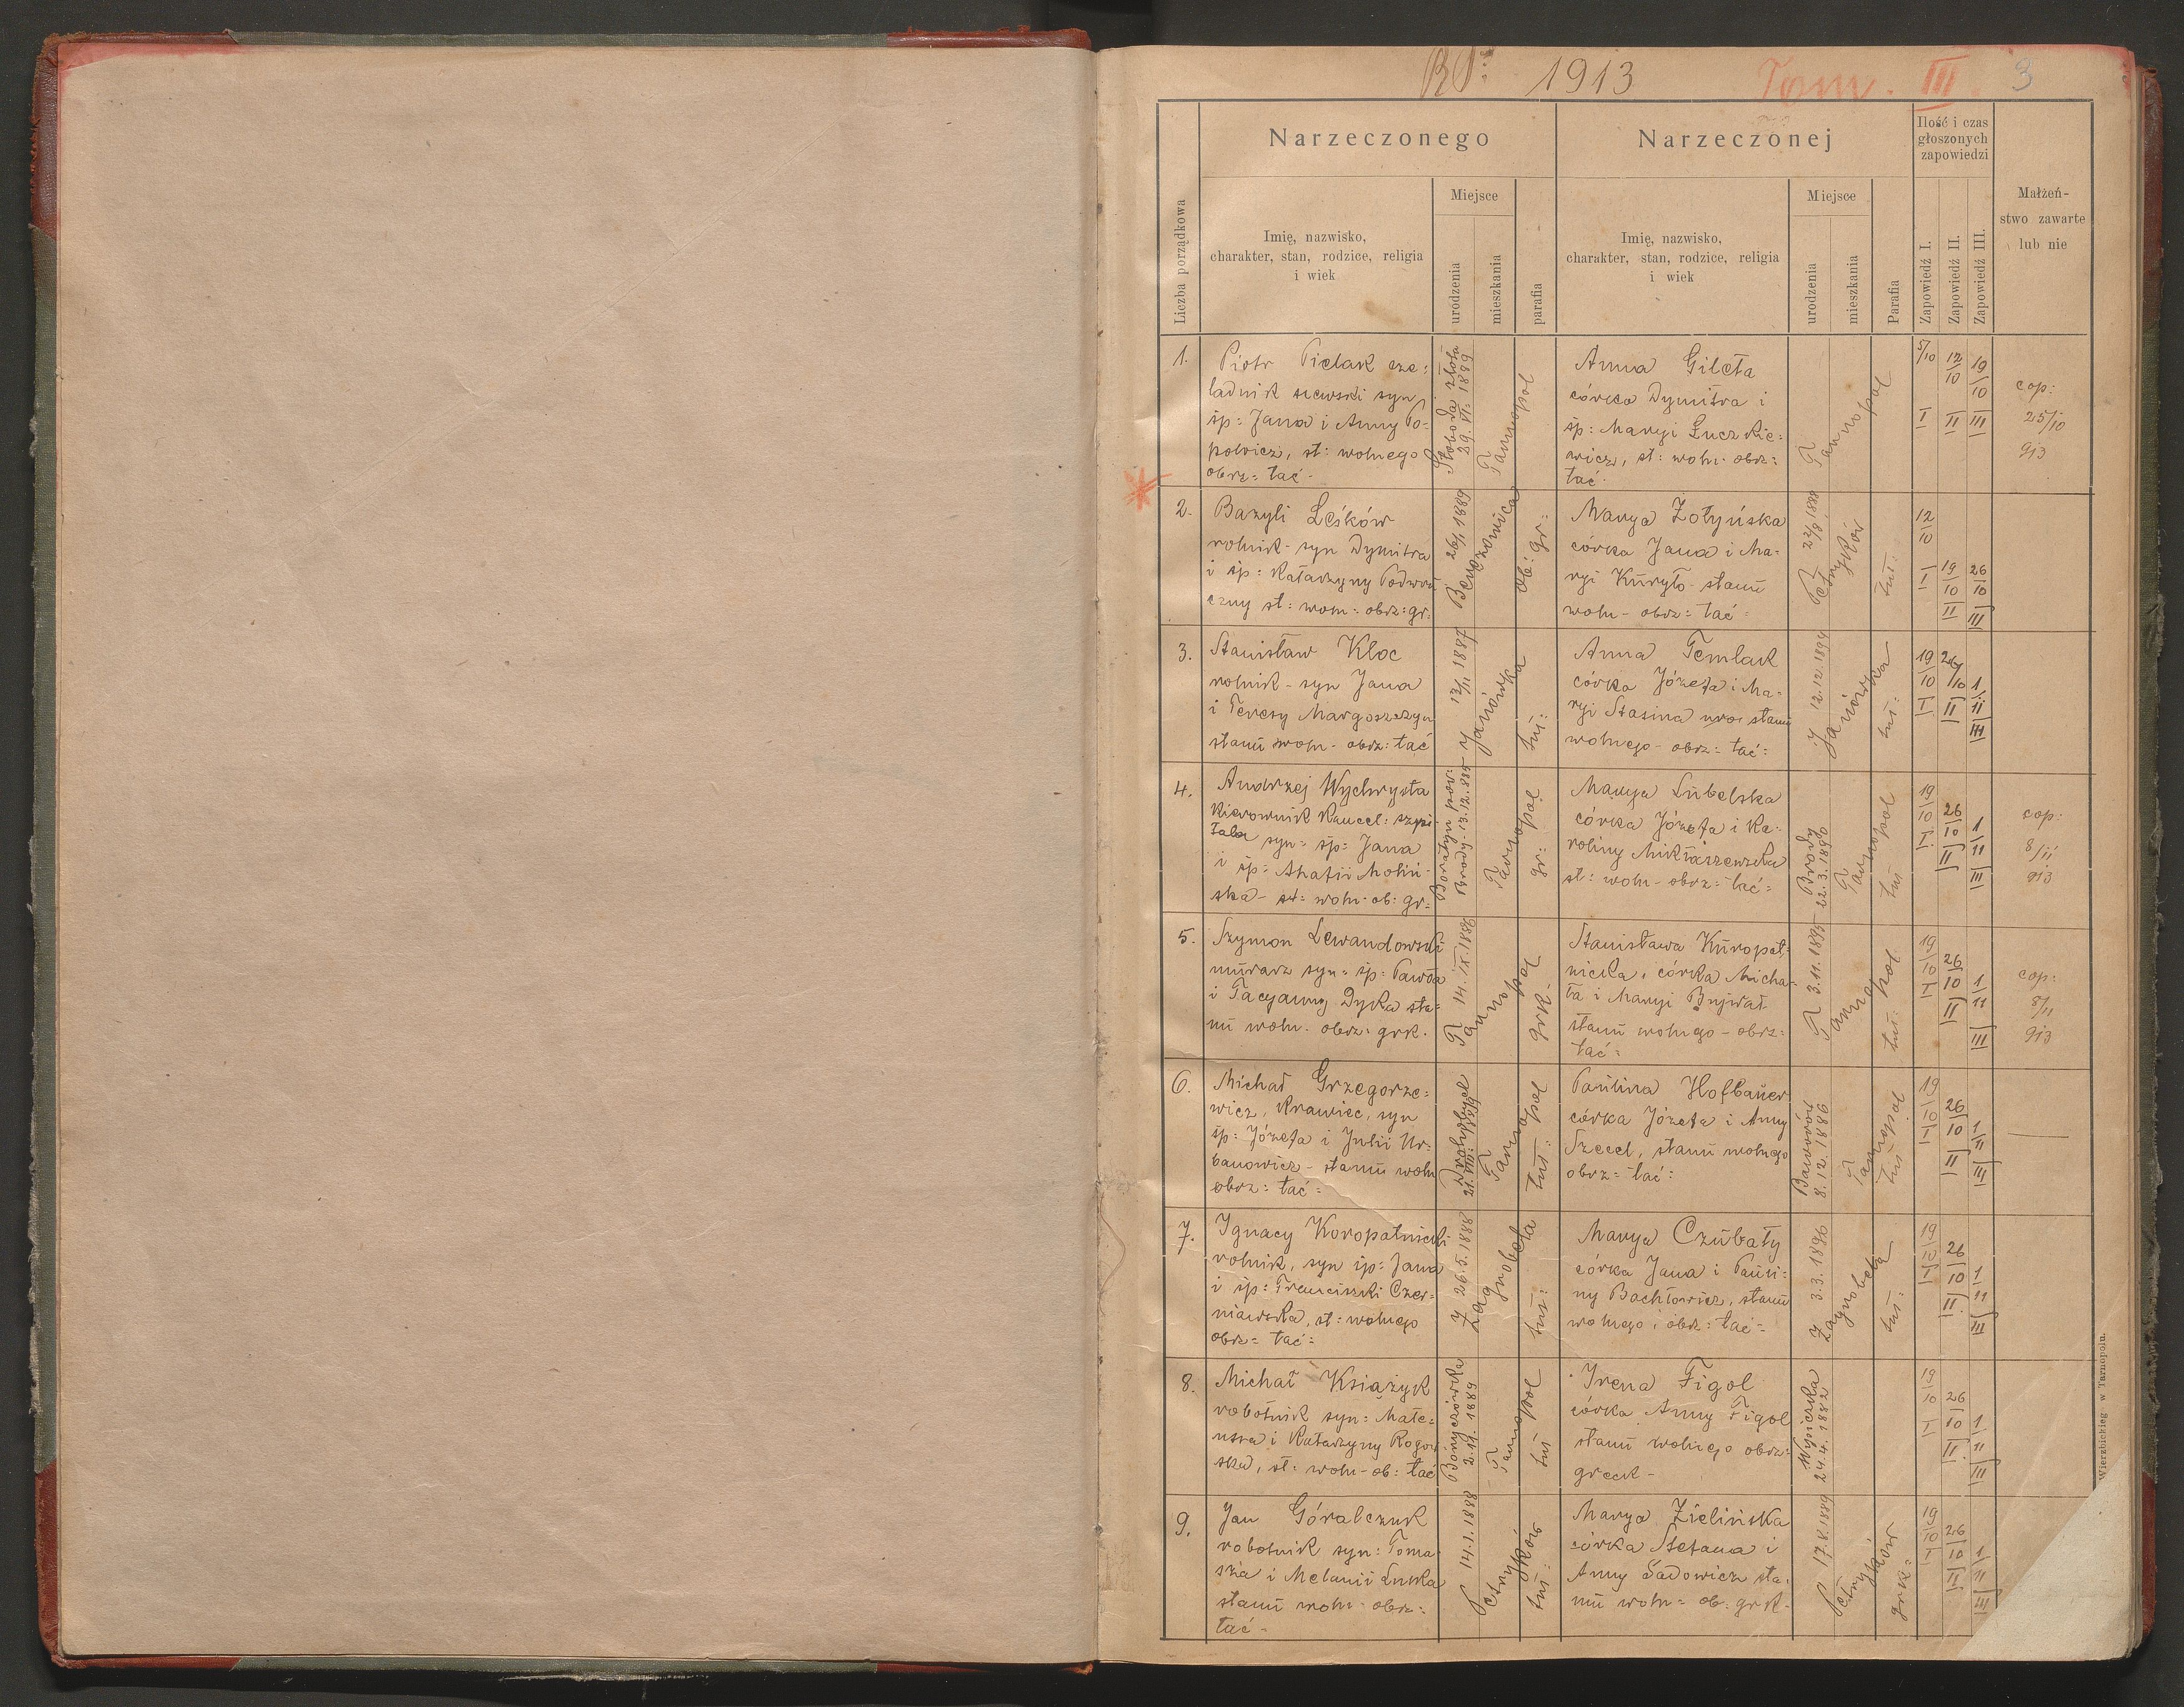 Rp: 1913 Tom. III. 3
Narzeczonego
Narzeczonej
Ilość i czas
głoszonych
zapowiedzi
Małżeń-
stwo zawarte
lub nie
Liczba porządkowa
Imię, nazwisko,
charakter, stan, rodzice, religia
i wiek
Miejsce
urodzenia
mieszkania
parafia
Imię, nazwisko,
charakter, stan, rodzice, religia
i wiek
Miejsce
urodzenia
mieszkania
Parafia
Zapowiedź I.
Zapowiedź II.
Zapowiedź III.
1.
Piotr Pielak cze:
ladnik szewski syn
śp: Jana i Anny Po=
powicz, st: wolnego
obrz= łać-
Słoboda złota
29. VI. 1889
Tarnopol
Anna Gileta
córka Dymitra i
śp: Maryi Łuczkie:
wicz, st: woln: obrz:
łać-
Tarnopol
5/10 I
12/10 II
19/10 III
cop:
25/10
913
2.
Bazyli Leśków
rolnik- syn Dymitra
i śp: Katarzyny Podwor
czny st: woln: obrz: gr:
26/1 1889
Berezowica
ob: gr:
Marya Zołyńska
córka Jana i Ma-
ryi Kuryło- stanu
woln- obrz= łać=
22/8 1888
Petryków
tut:
12/10 I
19/10 II
26/10 III
3.
Stanisław Kloc
rolnik- syn Jana
i Teresy Margoszczyn
stanu woln- obrz: łać
13/11 1887
Janówka
tut:
Anna Temlak
córka Józefa i Ma-
ryi Stasina stanu
wolnego- obrz= łać:
12.12.1894
Janówka
tut:
19/10 I
26/10 II
1/11 III
4.
Andrzej Wychrysta
kierownik kancel: szpi
tala syn= śp= Jana
i śp= Ahafii Moliń-
ska- st= woln- ob: gr=
Boratyn pow:
Brody- 13.12.885
Tarnopol
gr:
Marya Lubelska
córka Józefa i Ka-
roliny Mikłaszewska
st: woln- obrz= łać=
Brody
22.3.1890
Tarnopol
tut
19/10 I
26/10 II
1/11 III
cop:
8/11
913
5.
Szymon Lewandowski
murarz syn= śp= Pawła
i Tacyanny Dyka sta=
nu woln. obrz: grk.
14. IX. 1886
Tarnopol
grk-
Stanisława Kuropat-
nicka, córka Micha-
ła i Maryi Bujwał
stanu wolnego- obrz:
łać=
3.11.1895
Tarnopol
tut:
19/10 I
26/10 II
1/11 III
cop:
8/11
913
6.
Michał Grzegorze=
wicz, krawiec, syn
śp= Józefa i Julii Ur=
banowicz- stanu woln
obrz= łać=
Drohobycz
Tarnopol
tut:
Paulina Hofbauer
córka Józefa i Anny
Szecel, stanu wolnego
obrz= łać:
Baworów
8.12.1886
Tarnopol
tut
19/10 I
26/10 II
1/11 III
7.
Ignacy Koropatnicki
rolnik, syn śp= Jana
i śp= Franciszki Czer=
niawska, st: wolnego
obrz= łać=
26.5.1888
Zagrobela
tut:
Marya Czubaty
córka Jana i Pauli-
ny Bachłowicz, stanu
wolnego, obrz: łać=
3.3.1896
Zagrobela
tut:
19/10 I
26/10 II
1/11 III
8.
Michał Książyk
robotnik syn= Mate=
usza i Katarzyny Rogow
ska, st: woln- ob: łać
Bonyczówka
2.11.1889
Tarnopol
tut
Irena Figol
córka Anny Figol
stanu wolnego obrz:
greck-
Wypiczka
24.4.1882
19/10 I
26/10 II
1/11 III
9.
Jan Góralczuk
robotnik syn: Toma
sza i Melanii Luska
stanu woln- obrz:
łać-
14.1.1888
Petryków
tut:
Marya Zielińska
córka Stefana i
Anny Sadowicz sta-
nu woln= ob: grk-
17.8.1889
Petryków
grk=
19/10 I
26/10 II
1/11 III
Wierzbickieg w Tarnopolu.